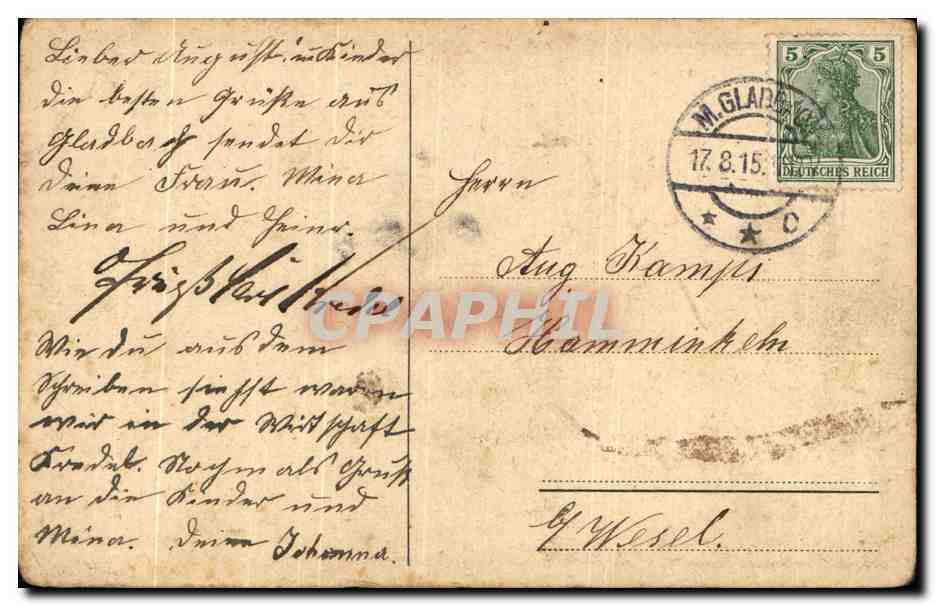 Lieber August. u Kinder
die besten Grüße aus
Gladbach sendet dir
deine Frau. Mina
Lina und Heinr.
Wie du aus dem
Schreiben siehst waren
wir in der Wirtschaft
Kredel. Nochmals Gruß
an die Kinder und
Mina. Deine Johanna.
5 5
DEUTSCHES REICH
M.GLADBACH
17.8.15.
* * C
Herrn
Aug. Kamps
Hamminkeln
b/ Wesel.
CPAPHIL